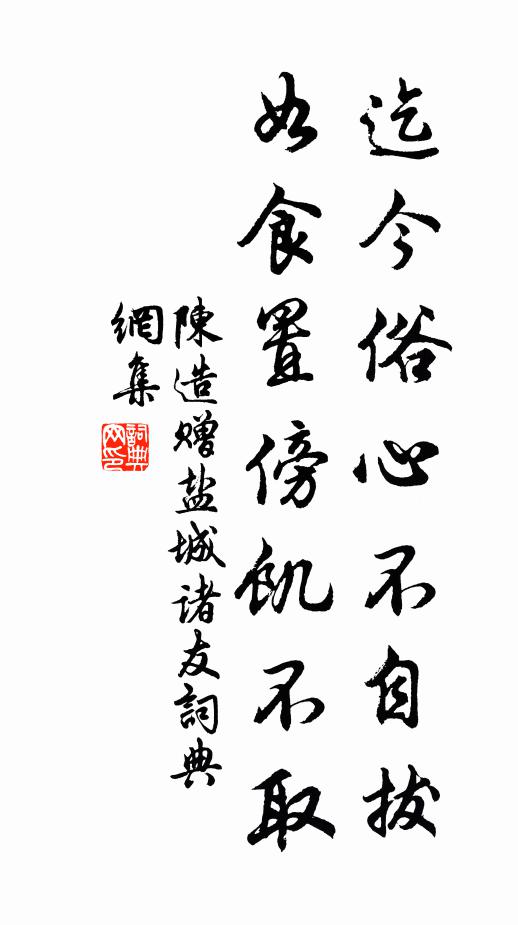 迄今俗心不自拔
如食置傍飢不取
陳造赠盐城诸友詞典
網集
詞典網印